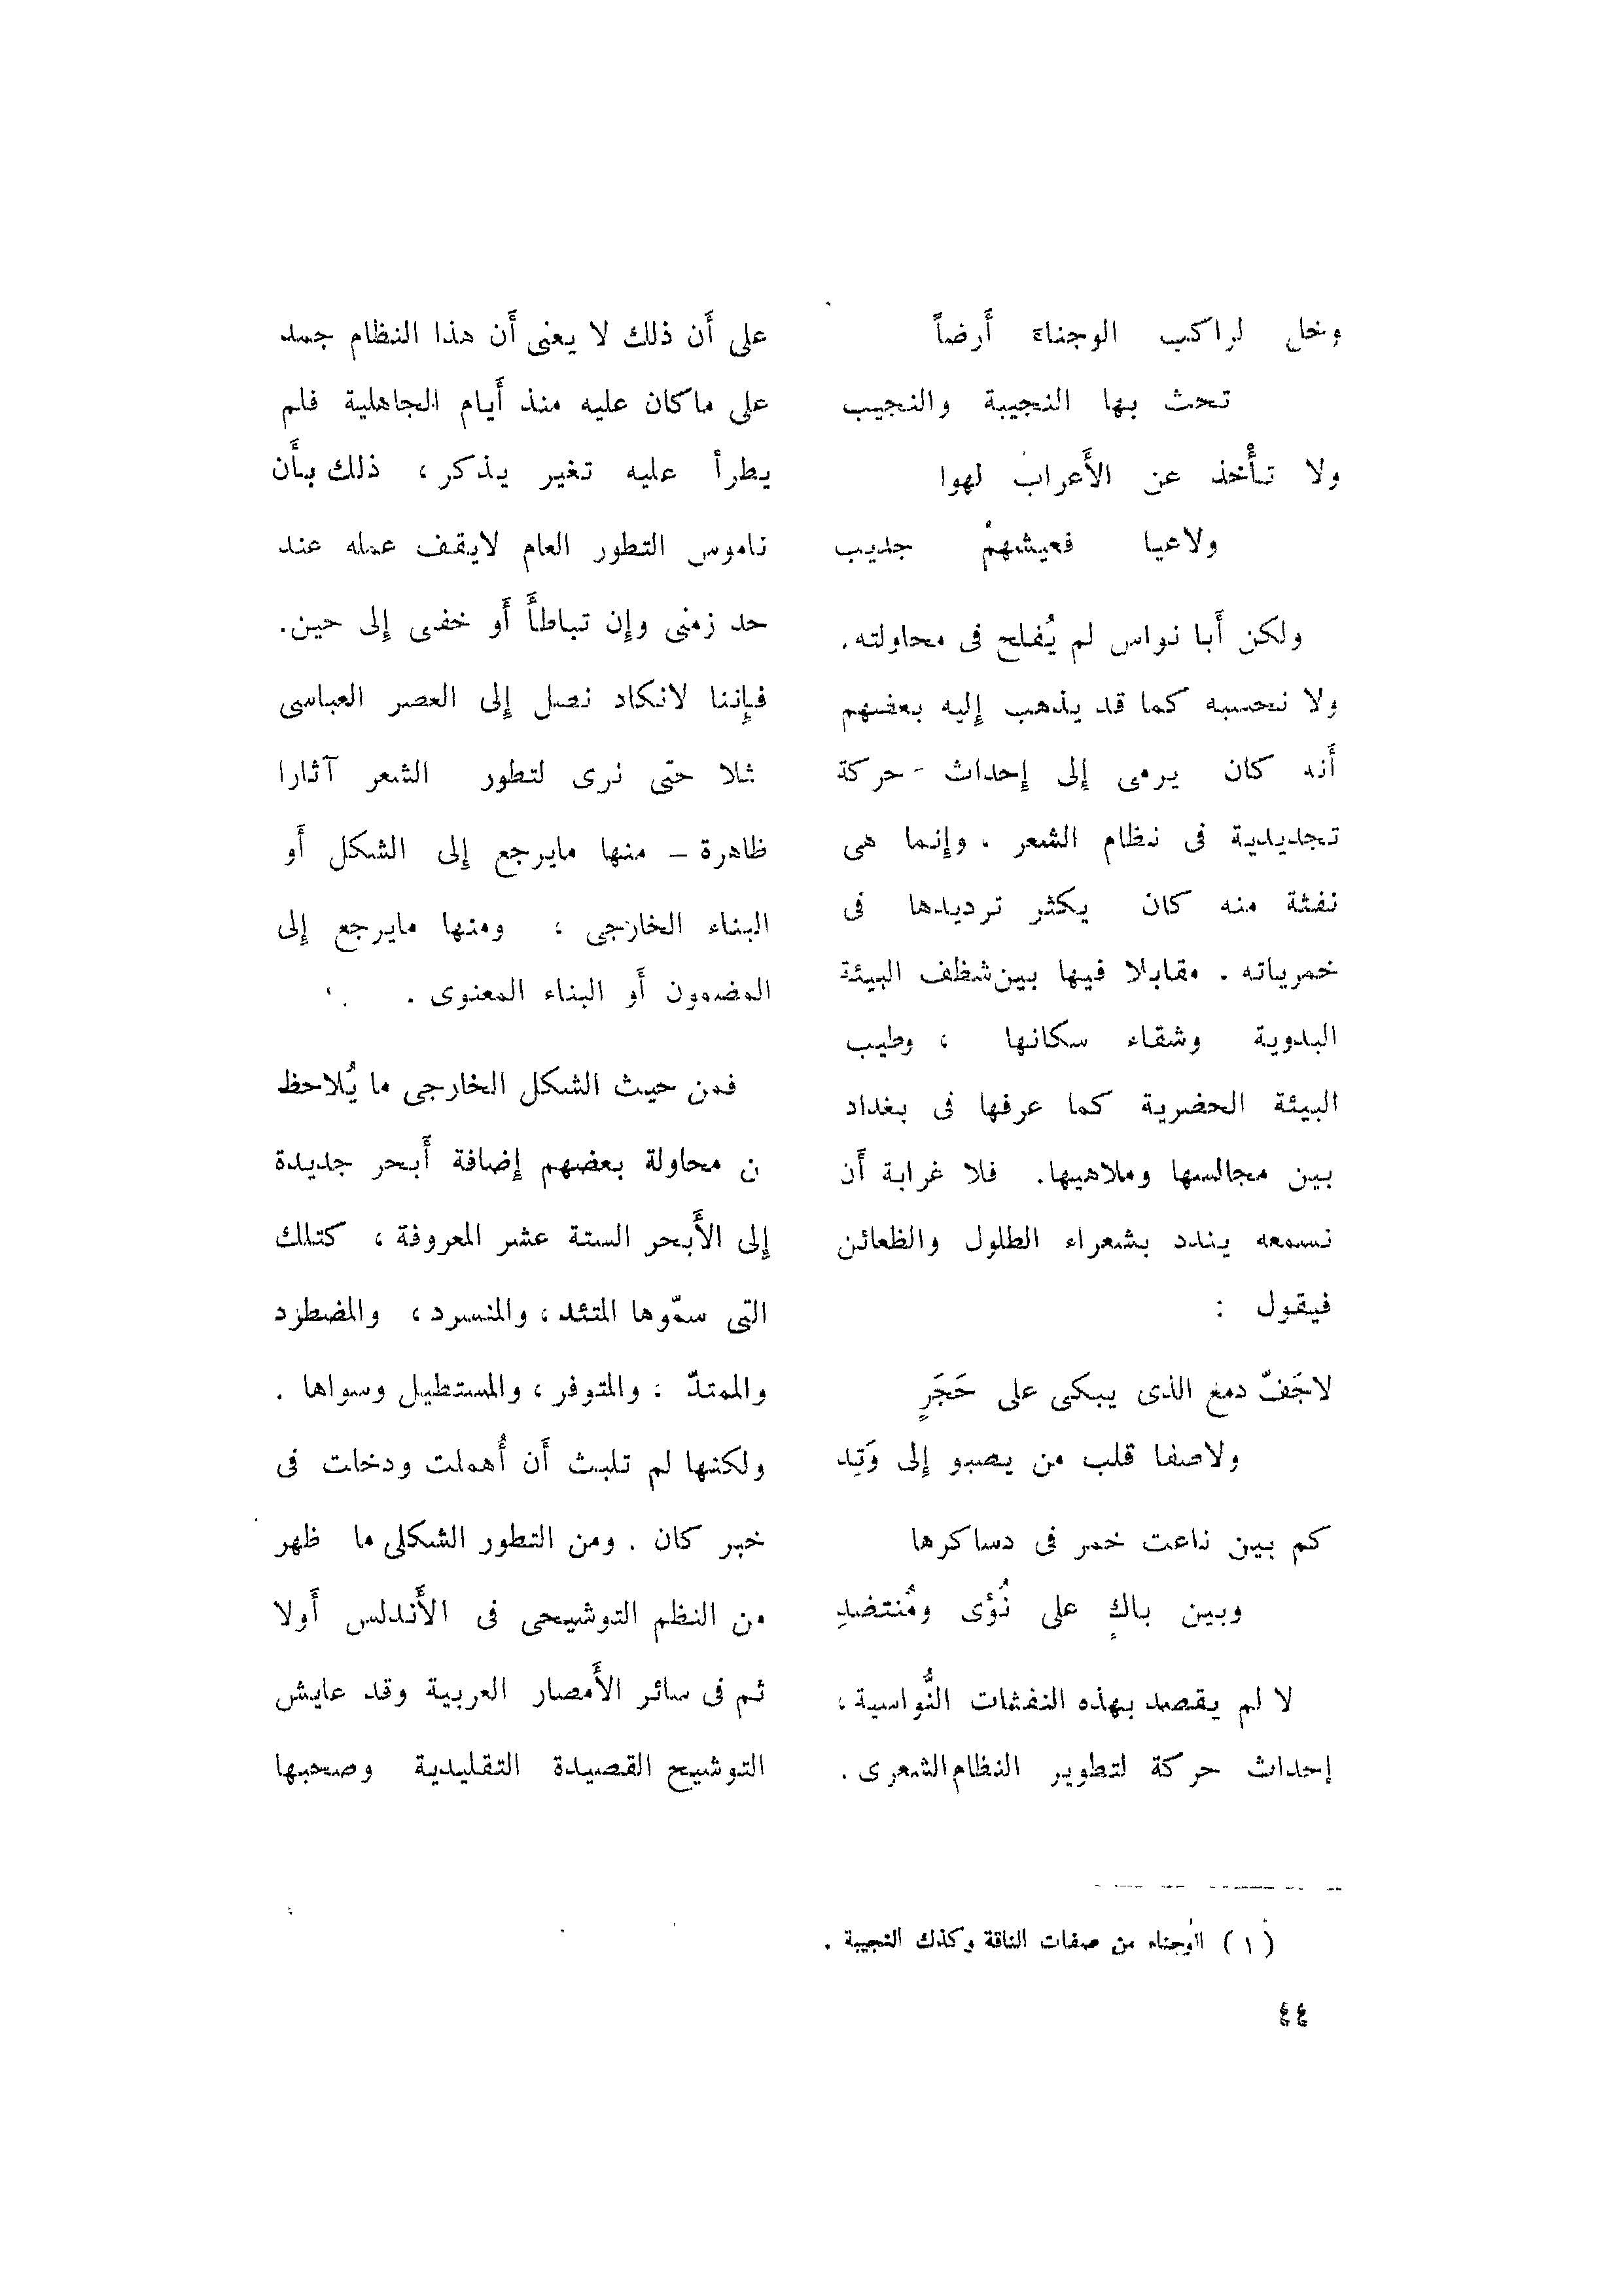 وخل لراكب الوجناة أَرضاً
تحث بها النجيبة والنجيب
ولا تأْخذ عن الأَعراب لهوا
ولاعيا فعيشهمْ جديب
ولكن أَبا نواس لم يُفلح فى محاولته.
ولا نحسبه كما قد يذهب إِليه بعضهم
أَنه كان يرمى إلى إِحداث - حركة
تجديدية فى نظام الشعر ، وإِنما هى
نفثة منه كان يكثر ترديدها فى
خمرياته . مقابلا فيها بين شظف البيئة
البدوية وشقاء سكانها ، وطيب
البيئة الحضرية كما عرفها فى بغداد
بين مجالسها وملاهيها. فلا غرابة أَن
نسمعه يندد بشعراء الطلول والظعائن
فيقول :
لاجَفّ دمع الذى يبكى على حَجَرٍ
ولاصفا قلب من يصبو إِلى وَتِد
كم بين ناعت خمر فى دساكرها
وبين باكٍ على نُؤى ومُنتضدِ
لا لم يقصد بهذه النفثات النُّواسية ،
إحداث حركة لتطوير النظام الشعرى .
على أَن ذلك لا يعنى أَن هذا النظام جمد
على ماكان عليه منذ أَيام الجاهلية فلم
يطرأ عليه تغير يذكر ، ذلك بأَن
ناموس التطور العام لايقف عمله عند
حد زمنى وإِن تباطأَ أَو خفى إِلى حين.
فإِننا لانكاد نصل إِلى العصر العباسى
ثلا حتى نرى لتطور الشعر آثارا
ظاهرة – منها مايرجع إِلى الشكل أَو
البناء الخارجى ؛ ومنها مايرجع إِلى
المضمون أَو البناء المعنوى .
فمن حيث الشكل الخارجى ما يُلاحظ
ن محاولة بعضهم إِضافة أَبحر جديدة
إِلى الأَبحر الستة عشر المعروفة ، كتلك
التى سمّوها المتئد ، والمنسرد ، والمضطرد
والممتدّ ، والمتوفر ، والمستطيل وسواها .
ولكنها لم تلبث أَن أُهملت ودخلت فى
خبر كان . ومن التطور الشكلى ما ظهر
من النظم التوشيحى فى الأَندلس أَولا
ثم فى سائر الأَمصار العربية وقد عايش
التوشيح القصيدة التقليدية وصحبها
(١) الوجناء من صفات الناقة وكذلك النجيبة .
٤٤